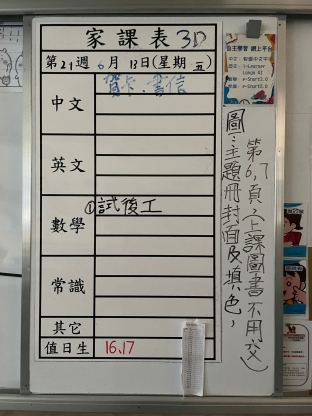 家課表 3D
第21週 6月13日(星期五)
中文 賀卡、書信
英文
數學 ①試後工
常識
其它
值日生 16,17
圖:主題冊封面及填色,
第6,7頁,(上課圖書不用交)
自主學習 網上平台